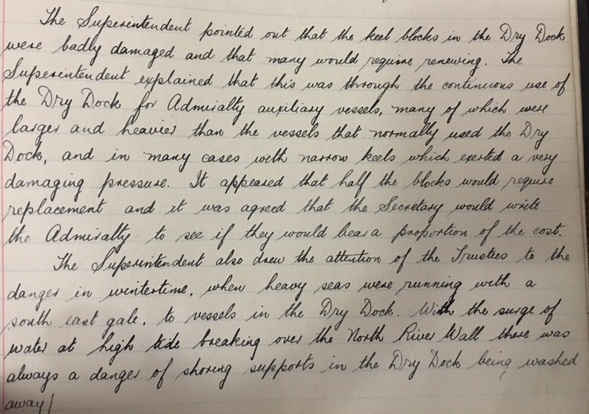 The Superintendent pointed out that the keel blocks in the Dry Dock
were badly damaged and that many would require renewing. The
Superintendent explained that this was through the continuous use of
the Dry Dock for Admiralty auxiliary vessels, many of which were
larger and heavier than the vessels that normally used the Dry
Dock, and in many cases with narrow keels which exerted a very
damaging pressure. It appeared that half the blocks would require
replacement and it was agreed that the Secretary would write
the Admiralty to see if they would bear a proportion of the cost.
The Superintendent also drew the attention of the Trustees to the
danger in wintertime, when heavy seas were running with a
south east gale, to vessels in the Dry Dock. With the surge of
water at high tide breaking over the North River Wall there was
always a danger of shoring supports in the Dry Dock being washed
away/